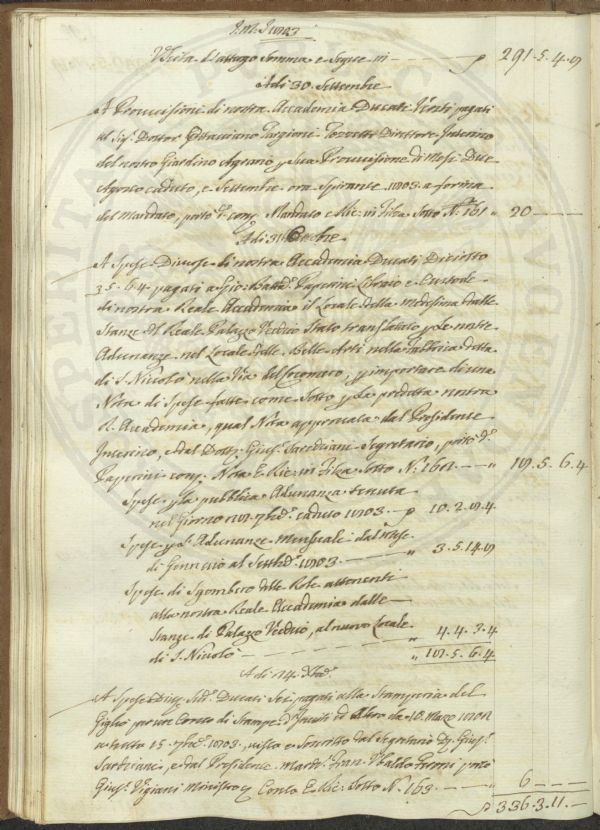 Uscita d'attergo Somma e Segue in 291.5.4
Adi 30. Settembre
A Provvisioni di nostra Accademia Ducati Venti pagati
al Sig. Dottor Ottaviano Targioni Tozzetti Direttore Interino
del nostro Giardino Agrario p sua Provvisione di Mesi Due
Agosto caduto, e Settembre ora Spirante a forma
del Mandato, portò d. cont. Mandato e Ric. in Filza Sotto N. 161 " 20
Adi 31 Ottobre
A Spese Diverse di nostra Accademia Ducati Diciotto
3.5.6.4 pagati a Gio. Batta. Paperini Libraio e Custode
di nostra Reale Accademia il Locale della Medesima dalle
Stanze del Reale Palazzo Vecchio Stato translatato p le nostre
Adunanze nel Locale delle Belle Arti nella fabbrica detta
di S. Niccolò nella Via del Cocomero, p importare di una
Nota di Spese fatte come Sotto p la predetta nostra
R. Accademia, qual Nota approvata dal Presidente
Interino, e dal Dott. Gius. Sarchiani Segretario, portò d.
Paperini cont. Nota E Ric. in Filza Sotto N. 162 " 5.6.4
Spese p la pubblica Adunanza tenuta
nel Giorno 7bre. caduto 10.2.
Spese p l'Adunanze Mensuali dal Mese
di Gennaio al Settbre. " 3.5.14
Spese di Sgombero delle Robe attenenti
alla nostra Reale Accademia dalle
Stanze di Palazzo Vecchio, al nuovo Locale
di S. Niccolò " 4.4.3.4
" 5.6.4
Adi Xbre.
A Spese Div. Sud. Ducati Sei pagati alla Stamperia del
Giglio per un Conto di Stampe d'Inviti ed Altro da 10. Marzo
a tutto 15. 7bre. visto e Soscritto dal Segretario D. Gius.
Sarchiani, e dal Presidente March. Gran. Ubaldo Feroni portò
Gius. Vigiani Ministro p Conto E Ric. Sotto N. 163 " 6
336.3.11